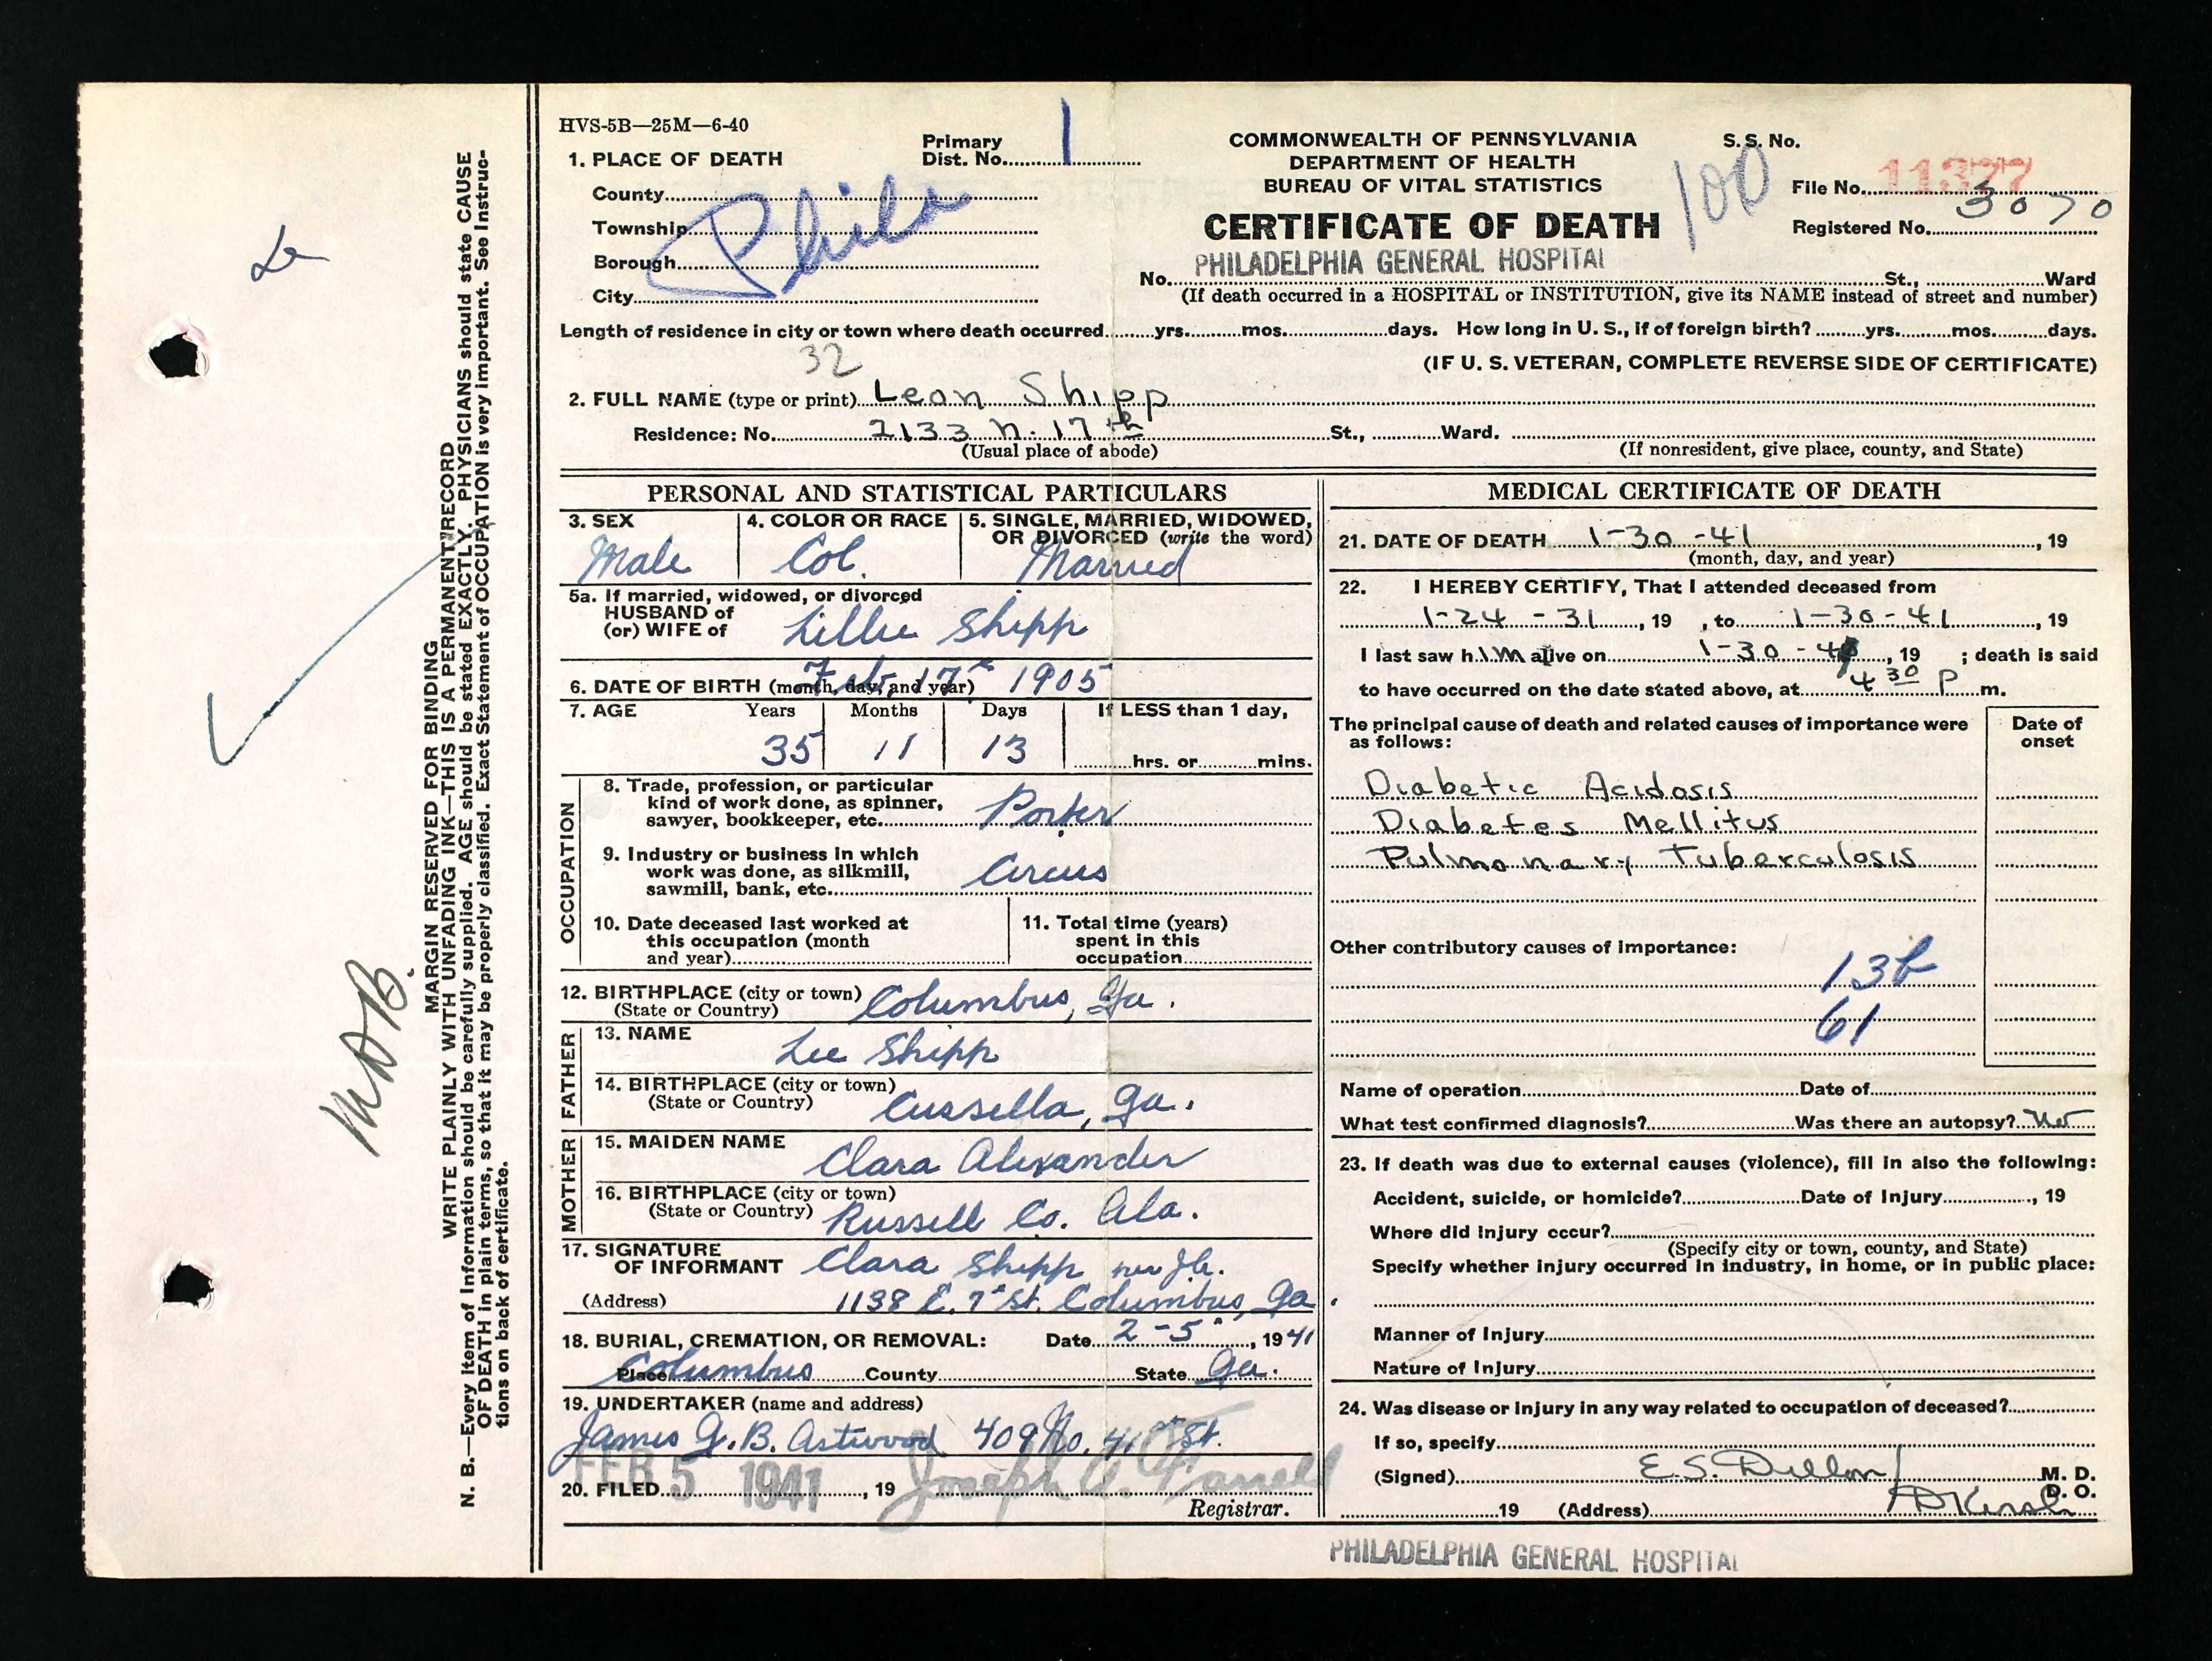 HVS-5B—25M—6-40
Primary
Dist. No. 1
COMMONWEALTH OF PENNSYLVANIA
DEPARTMENT OF HEALTH
BUREAU OF VITAL STATISTICS
CERTIFICATE OF DEATH
S. S. No.
100
File No. 11377
Registered No. 3070
1. PLACE OF DEATH
County
Township
Borough
City
Phila
PHILADELPHIA GENERAL HOSPITAL
No. St., Ward
(If death occurred in a HOSPITAL or INSTITUTION, give its NAME instead of street and number)
Length of residence in city or town where death occurred yrs. mos. days. How long in U. S., if of foreign birth? yrs. mos. days.
32
(IF U. S. VETERAN, COMPLETE REVERSE SIDE OF CERTIFICATE)
2. FULL NAME (type or print) Leon Shipp
Residence: No. 2133 N. 17th St., Ward.
(Usual place of abode) (If nonresident, give place, county, and State)
PERSONAL AND STATISTICAL PARTICULARS
3. SEX
Male
4. COLOR OR RACE
Col.
5. SINGLE, MARRIED, WIDOWED,
OR DIVORCED (write the word)
Married
5a. If married, widowed, or divorced
HUSBAND of
(or) WIFE of
Lillie Shipp
6. DATE OF BIRTH (month, day, and year) Feb. 17th 1905
7. AGE Years Months Days If LESS than 1 day,
35 11 13 hrs. or mins.
OCCUPATION
8. Trade, profession, or particular
kind of work done, as spinner,
sawyer, bookkeeper, etc. Porter
9. Industry or business in which
work was done, as silkmill,
sawmill, bank, etc. Circus
10. Date deceased last worked at
this occupation (month
and year)
11. Total time (years)
spent in this
occupation
12. BIRTHPLACE (city or town) Columbus, Ga.
(State or Country)
FATHER
13. NAME
Lee Shipp
14. BIRTHPLACE (city or town)
(State or Country) Cussella, Ga.
MOTHER
15. MAIDEN NAME
Clara Alexander
16. BIRTHPLACE (city or town)
(State or Country) Russell Co. Ala.
17. SIGNATURE
OF INFORMANT Clara Shipp
(Address) 1138 E. 7th St. Columbus, Ga.
18. BURIAL, CREMATION, OR REMOVAL: Date 2-5, 1941
Place Columbus County State Ga.
19. UNDERTAKER (name and address)
James G. B. Astwood 409 No. 41st St.
20. FILED FEB 5 1941, 19 Joseph A. Farrell
Registrar.
MEDICAL CERTIFICATE OF DEATH
21. DATE OF DEATH 1-30-41, 19
(month, day, and year)
22. I HEREBY CERTIFY, That I attended deceased from
1-24-31, 19 , to 1-30-41, 19
I last saw him alive on 1-30-41, 19 ; death is said
to have occurred on the date stated above, at 4 30 P m.
The principal cause of death and related causes of importance were
as follows:
Date of
onset
Diabetic Acidosis
Diabetes Mellitus
Pulmonary Tuberculosis
Other contributory causes of importance:
13b
61
Name of operation Date of
What test confirmed diagnosis? Was there an autopsy? No
23. If death was due to external causes (violence), fill in also the following:
Accident, suicide, or homicide? Date of Injury , 19
Where did injury occur?
(Specify city or town, county, and State)
Specify whether injury occurred in industry, in home, or in public place:
Manner of Injury
Nature of Injury
24. Was disease or injury in any way related to occupation of deceased?
If so, specify
(Signed) E. S. Dillon M. D.
D. O.
19 (Address)
PHILADELPHIA GENERAL HOSPITAL
MARGIN RESERVED FOR BINDING
WRITE PLAINLY WITH UNFADING INK—THIS IS A PERMANENT RECORD
N. B.—Every item of information should be carefully supplied. AGE should be stated EXACTLY. PHYSICIANS should state CAUSE
OF DEATH in plain terms, so that it may be properly classified. Exact Statement of OCCUPATION is very important. See Instruc-
tions on back of certificate.